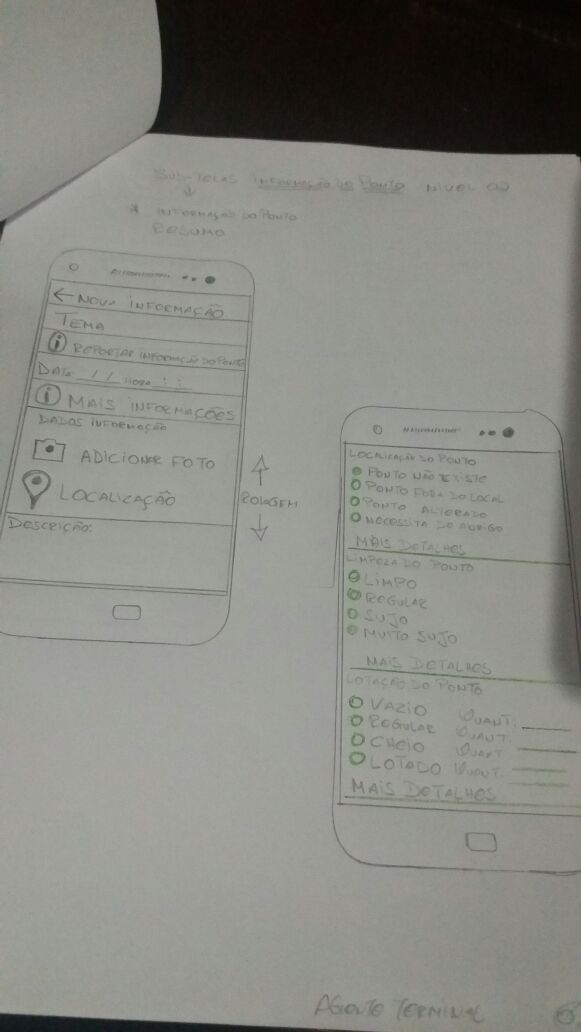 SUB-TELAS INFORMAÇÃO DO PONTO NIVEL 02
* INFORMAÇÃO DO PONTO
RESUMO
← NOVA INFORMAÇÃO
TEMA
i REPORTAR INFORMAÇÃO DO PONTO
DATA __/__/__ HORA : :
i MAIS INFORMAÇÕES
DADOS INFORMAÇÃO
ADICIONAR FOTO
LOCALIZAÇÃO
DESCRIÇÃO:
ROLAGEM
LOCALIZAÇÃO DO PONTO
PONTO NÃO EXISTE
PONTO FORA DO LOCAL
PONTO ALTERADO
NECESSITA DO ABRIGO
MAIS DETALHES
LIMPEZA DO PONTO
LIMPO
REGULAR
SUJO
MUITO SUJO
MAIS DETALHES
LOTAÇÃO DO PONTO
VAZIO QUANT: ____
REGULAR QUANT. ____
CHEIO QUANT ____
LOTADO QUANT. ____
MAIS DETALHES
AGENTE TERMINAL